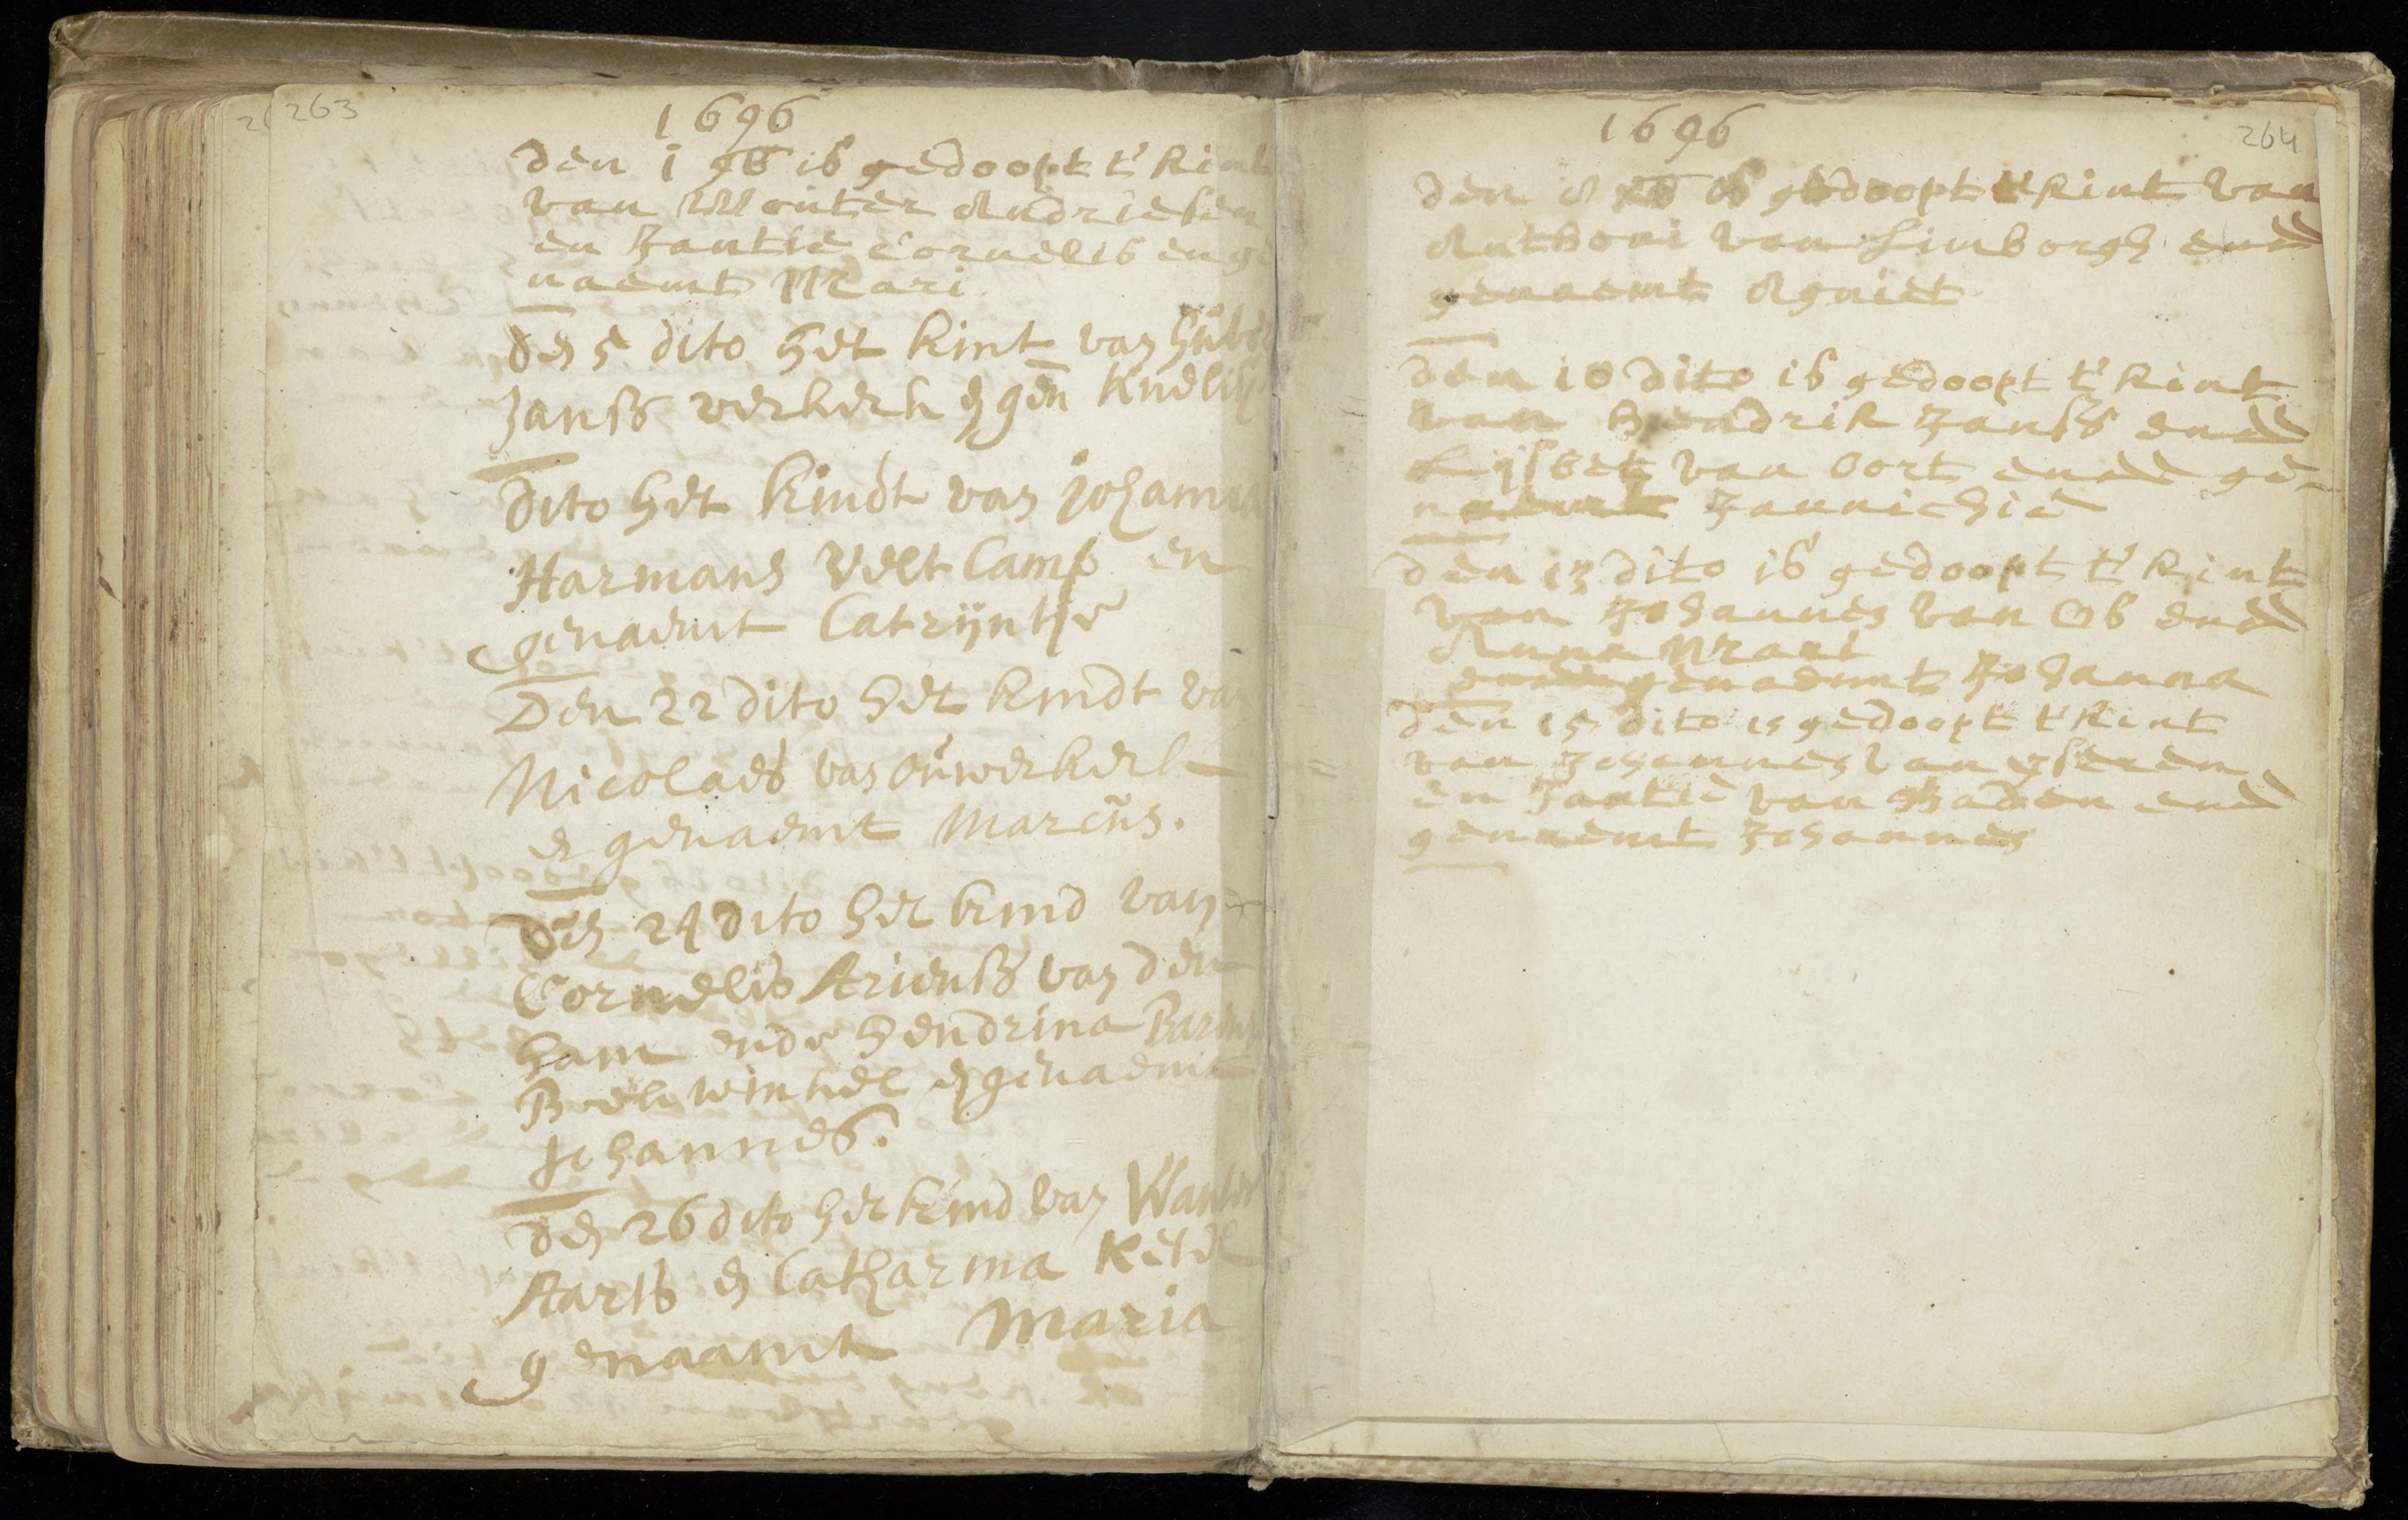 263
1696
den i 9b is gedoopt t' kint
van Wouter Andriesen
en Jantie Cornelis en ge
naemt Mari
den 5 dito het kint van Hube
Janss verkerk en gen Knelis
Dito het kindt van johanna
Harmans Velt Camp en
genaemt Catrijntje
Den 22 dito het kindt va
Nicolaes van ouwerkerk
en genaemt Marcus.
Den 24 dito het kind van
Cornelis Arienss van den
ham ende Hendrina
genaemt
Johannes.
den 26 dito het kind van Wauter
Aarts en Catharina Ketel
genaamt Maria
264
1696
den is gedoopt t' kint van
Anthoni van Limborgh ende
genaemt Agniet
den 10 dito is gedoopt t' kint
van Hendrik Janss ende
Lijsbet van Oort ende ge-
naemt Jannichie
den 13 dito is gedoopt t' kint
van Johannes van Os ende
Anna Mari
ende genaemt Johanna
den 15 dito is gedoopt t' kint
van Johannes van
en Jantie van ende
genaemt Johannes